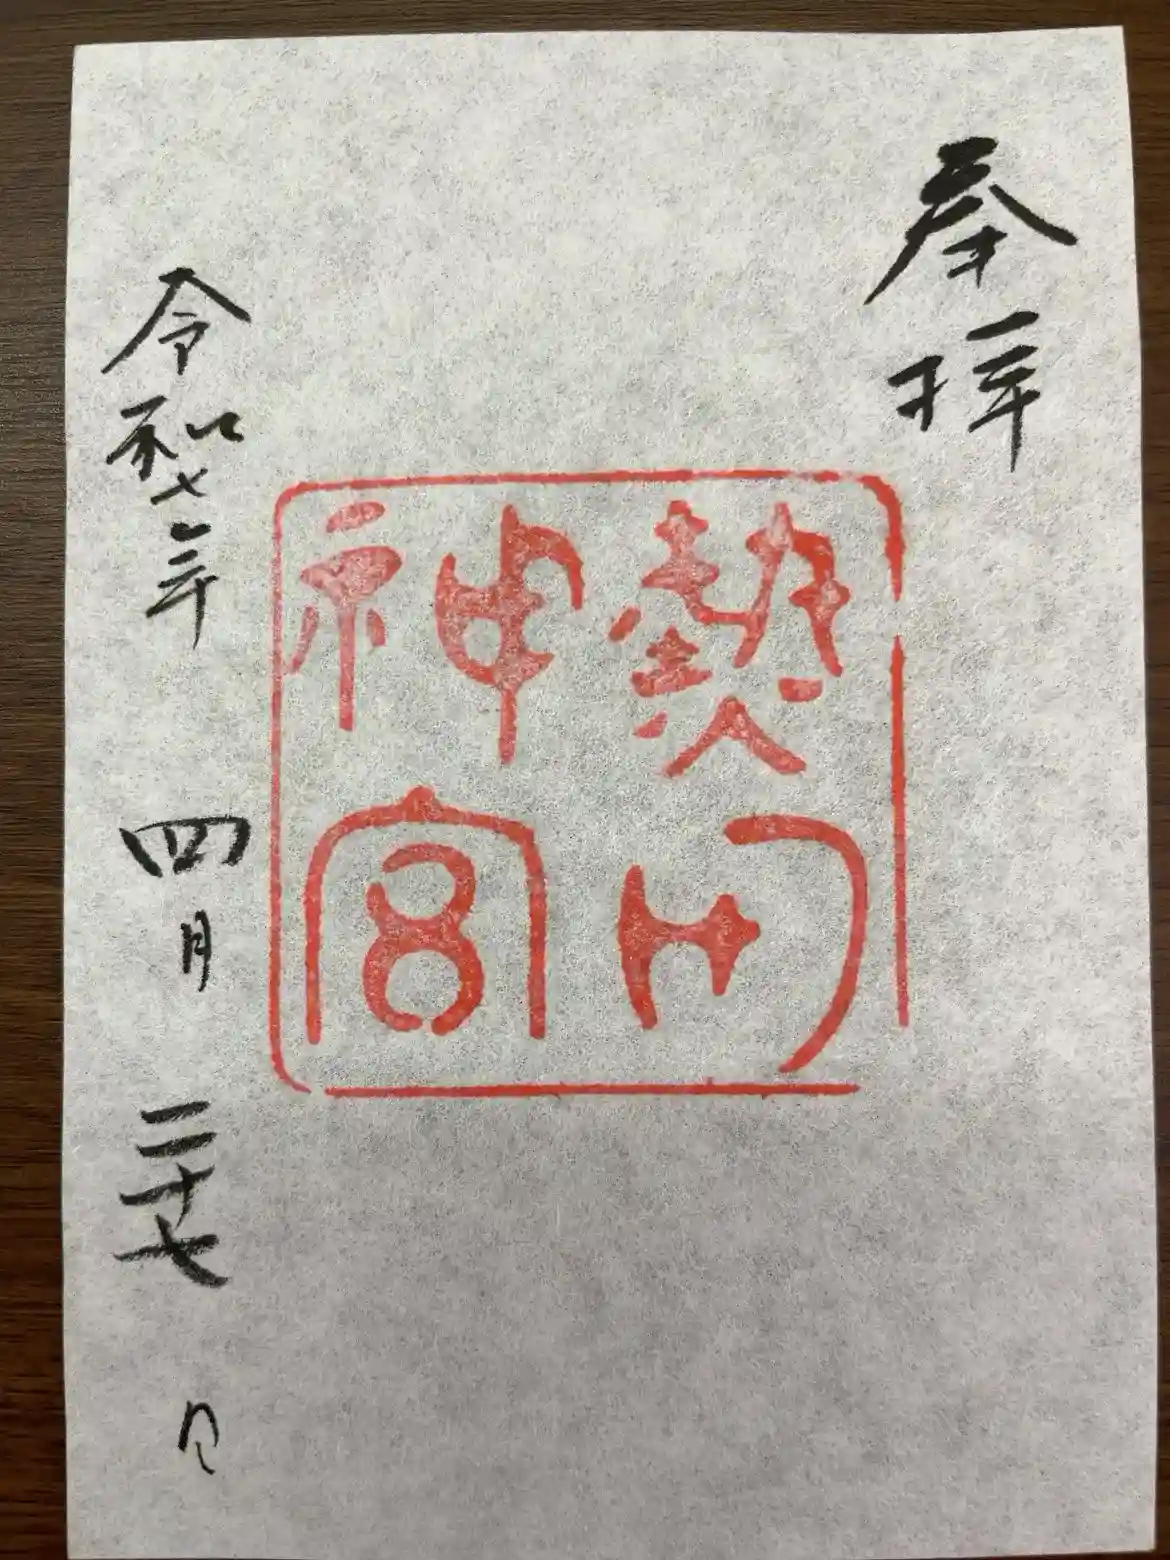 奉拝
熱田
神宮
令和七年 四月 二十七日